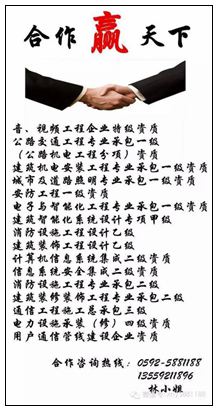 合作 赢 天下
音、视频工程企业特级资质
公路交通工程专业承包一级
(公路机电工程分项)资质
建筑机电安装工程专业承包一级资质
城市及道路照明专业承包一级资质
安防工程一级资质
电子与智能化工程专业承包一级资质
建筑智能化系统设计专项甲级
消防设施工程设计乙级
建筑装饰工程设计乙级
计算机信息系统集成二级资质
信息系统安全集成二级资质
消防设施工程专业承包二级
建筑装修装饰工程专业承包二级
通信工程施工总承包三级
电力设施承装(修)四级资质
用户通信管线建设企业资质
合作咨询热线:0592-5881188
13559211896
林小姐